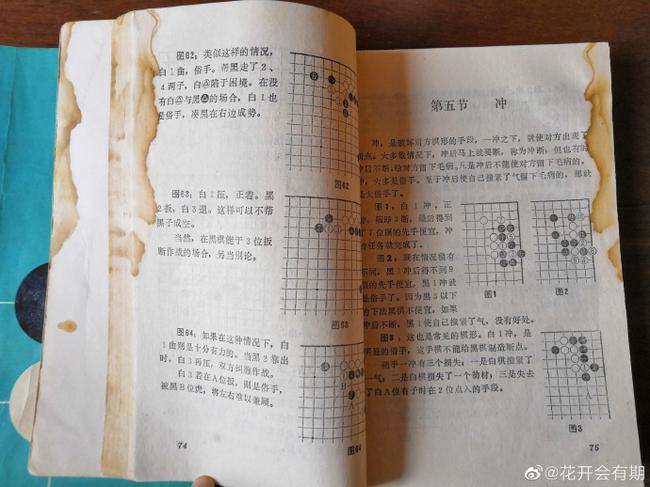 图62，类似这样的情况，
白1曲，俗手。帮黑走了2、
4两子，白陷于困境。在没
有白与黑的场合，白1也
是俗手，凑黑在右边成势。
图62
图63，白2压，正着。黑
2扳，白3退。这样可以不帮
黑子成空。
当然，在黑棋能于3位扳
断作战的场合，另当别论。
图63
图64，如果在这种情况下，白
1曲则是十分有力的。当黑2靠出
时，白3再压，双方纠缠作战。
白3若在A位扳，则是俗手，
被黑B位虎，将左右难以兼顾。
图64
74
第五节 冲
冲，是破坏对方棋形的手段，一冲之下，就使对方出现了
断点。大多数情况下，冲后马上就要断，称为冲断，但也有时
冲后不断，给对方留下毛病。凡是冲后不能使对方留下毛病的，
冲，大多是俗手。至于冲后使自己撞紧了气留下毛病的，那就
是大俗手了。
图1，白1冲，正
着。随即3断，最后得到
了7位顶的先手便宜，冲
的任务就完成了。
图2，现在情况稍有
不同，黑1冲后得不到9
顶的先手便宜，黑1冲就
是俗手了。因为黑3以下
的下法黑棋不便宜。如果
冲后不断，黑1使自己撞紧了气，没有好处。
图3，这也是常见的棋形。白1冲，是
明显的俗手，这手棋不能给黑棋制造断点。
俗手一冲有三个损失：一是白棋撞紧了
一气；二是白棋损失了一个劫材；三是失去
了白A位有子时在2位点入的手段。
图1
图2
图3
75
@花开会有期